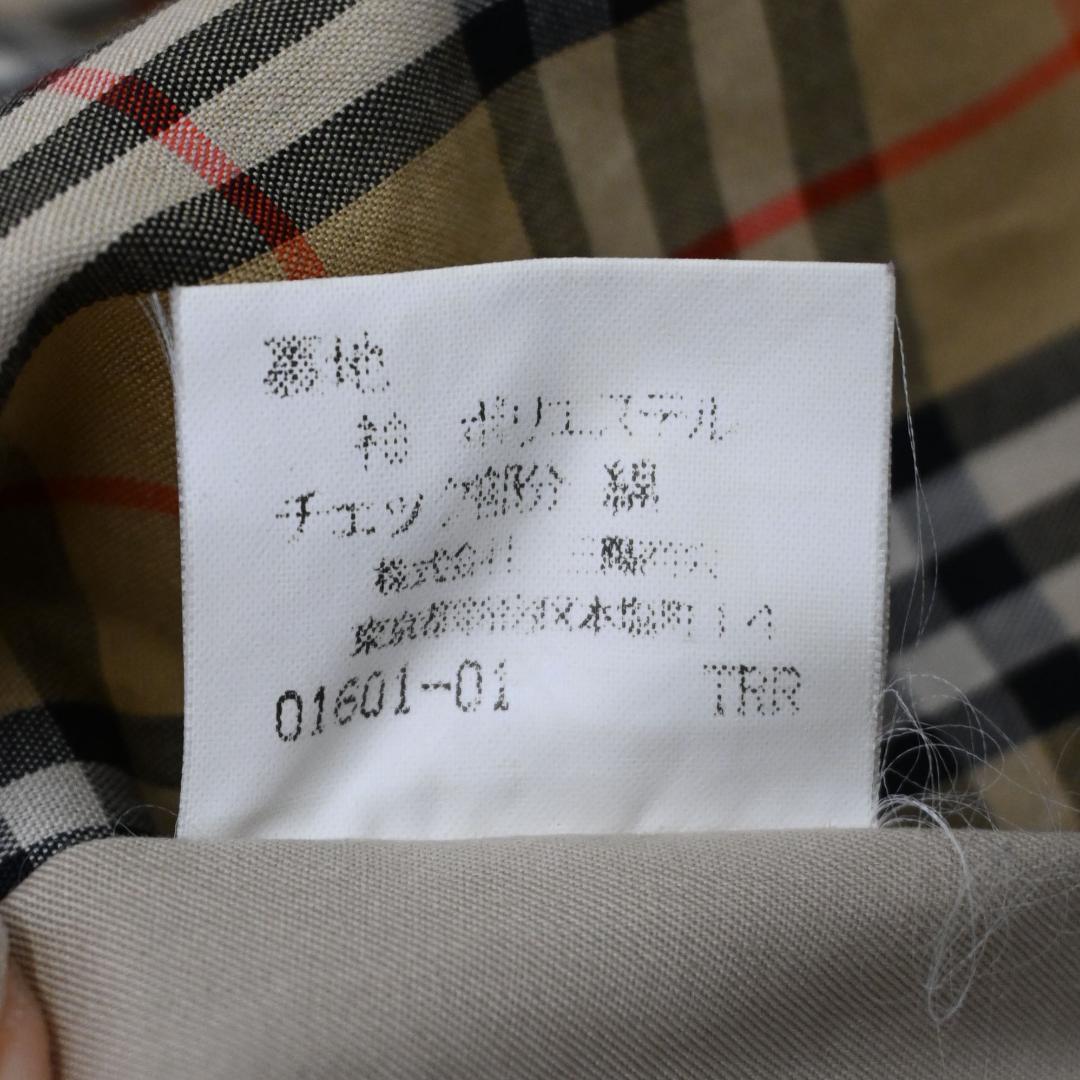 裏地
袖 ポリエステル
チェック部分 綿
株式会社 三陽商会
東京都新宿区本塩町14
01601-01 TRR